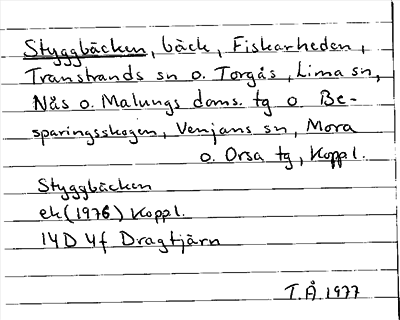 Styggbäcken, bäck, Fiskarheden,
Transtrands sn o. Torgås, Lima sn,
Nås o. Malungs doms. tg o Be-
sparingsskogen, Venjans sn, Mora
o. Orsa tg, Koppl.
Styggbäcken
ek (1976) Koppl.
14D 4f Dragtjärn
T.Å 1977